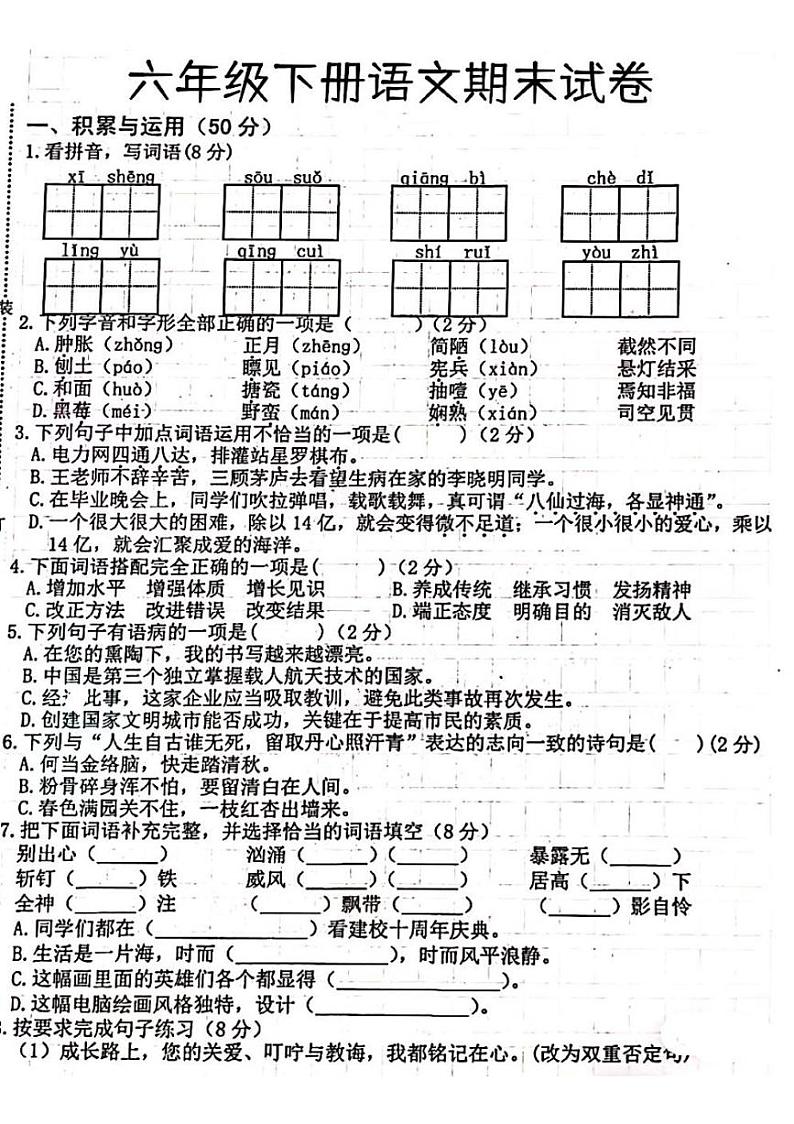 六年级下册语文期末试卷
一、积累与运用（50分）
1.看拼音，写词语(8分)
xī shēng sōu suǒ qiāng bì chè dǐ
līng yù qīng cuì shí ruǐ yòu zhì
装
2.下列字音和字形全部正确的一项是（ ）(2分)
A.肿胀（zhǒng） 正月（zhēng） 简陋（lòu） 截然不同
B.刨土（páo） 瞟见（piáo） 宪兵（xiàn） 悬灯结采
C.和面（huò） 搪瓷（táng） 抽噎（yē） 焉知非福
D.黑莓（méi） 野蛮（mán） 娴熟（xián） 司空见贯
3.下列句子中加点词语运用不恰当的一项是( )（2分）
A.电力网四通八达，排灌站星罗棋布。
B.王老师不辞辛苦，三顾茅庐去看望生病在家的李晓明同学。
C.在毕业晚会上，同学们吹拉弹唱，载歌载舞，真可谓“八仙过海，各显神通”。
D.一个很大很大的困难，除以14亿，就会变得微不足道；一个很小很小的爱心，乘以
14亿，就会汇聚成爱的海洋。
4.下面词语搭配完全正确的一项是( )(2分）
A.增加水平 增强体质 增长见识 B.养成传统 继承习惯 发扬精神
C.改正方法 改进错误 改变结果 D.端正态度 明确目的 消灭敌人
5.下列句子有语病的一项是( )（2分）
A.在您的熏陶下，我的书写越来越漂亮。
B.中国是第三个独立掌握载人航天技术的国家。
C.经 此事，这家企业应当吸取教训，避免此类事故再次发生。
D.创建国家文明城市能否成功，关键在于提高市民的素质。
6.下列与“人生自古谁无死，留取丹心照汗青”表达的志向一致的诗句是( )(2分)
A.何当金络脑，快走踏清秋。
B.粉骨碎身浑不怕，要留清白在人间。
C.春色满园关不住，一枝红杏出墙来。
7.把下面词语补充完整，并选择恰当的词语填空（8分）
别出心（______） 汹涌（______）（______） 暴露无（______）
斩钉（______）铁 威风（______）（______） 居高（______）下
全神（______）注 （______）飘带（______） （______）影自怜
A.同学们都在（______________）看建校十周年庆典。
B.生活是一片海，时而（______________），时而风平浪静。
C.这幅画里面的英雄们各个都显得（______________）。
D.这幅电脑绘画风格独特，设计（______________）。
8.按要求完成句子练习（8分）
（1）成长路上，您的关爱、叮咛与教诲，我都铭记在心。(改为双重否定句)